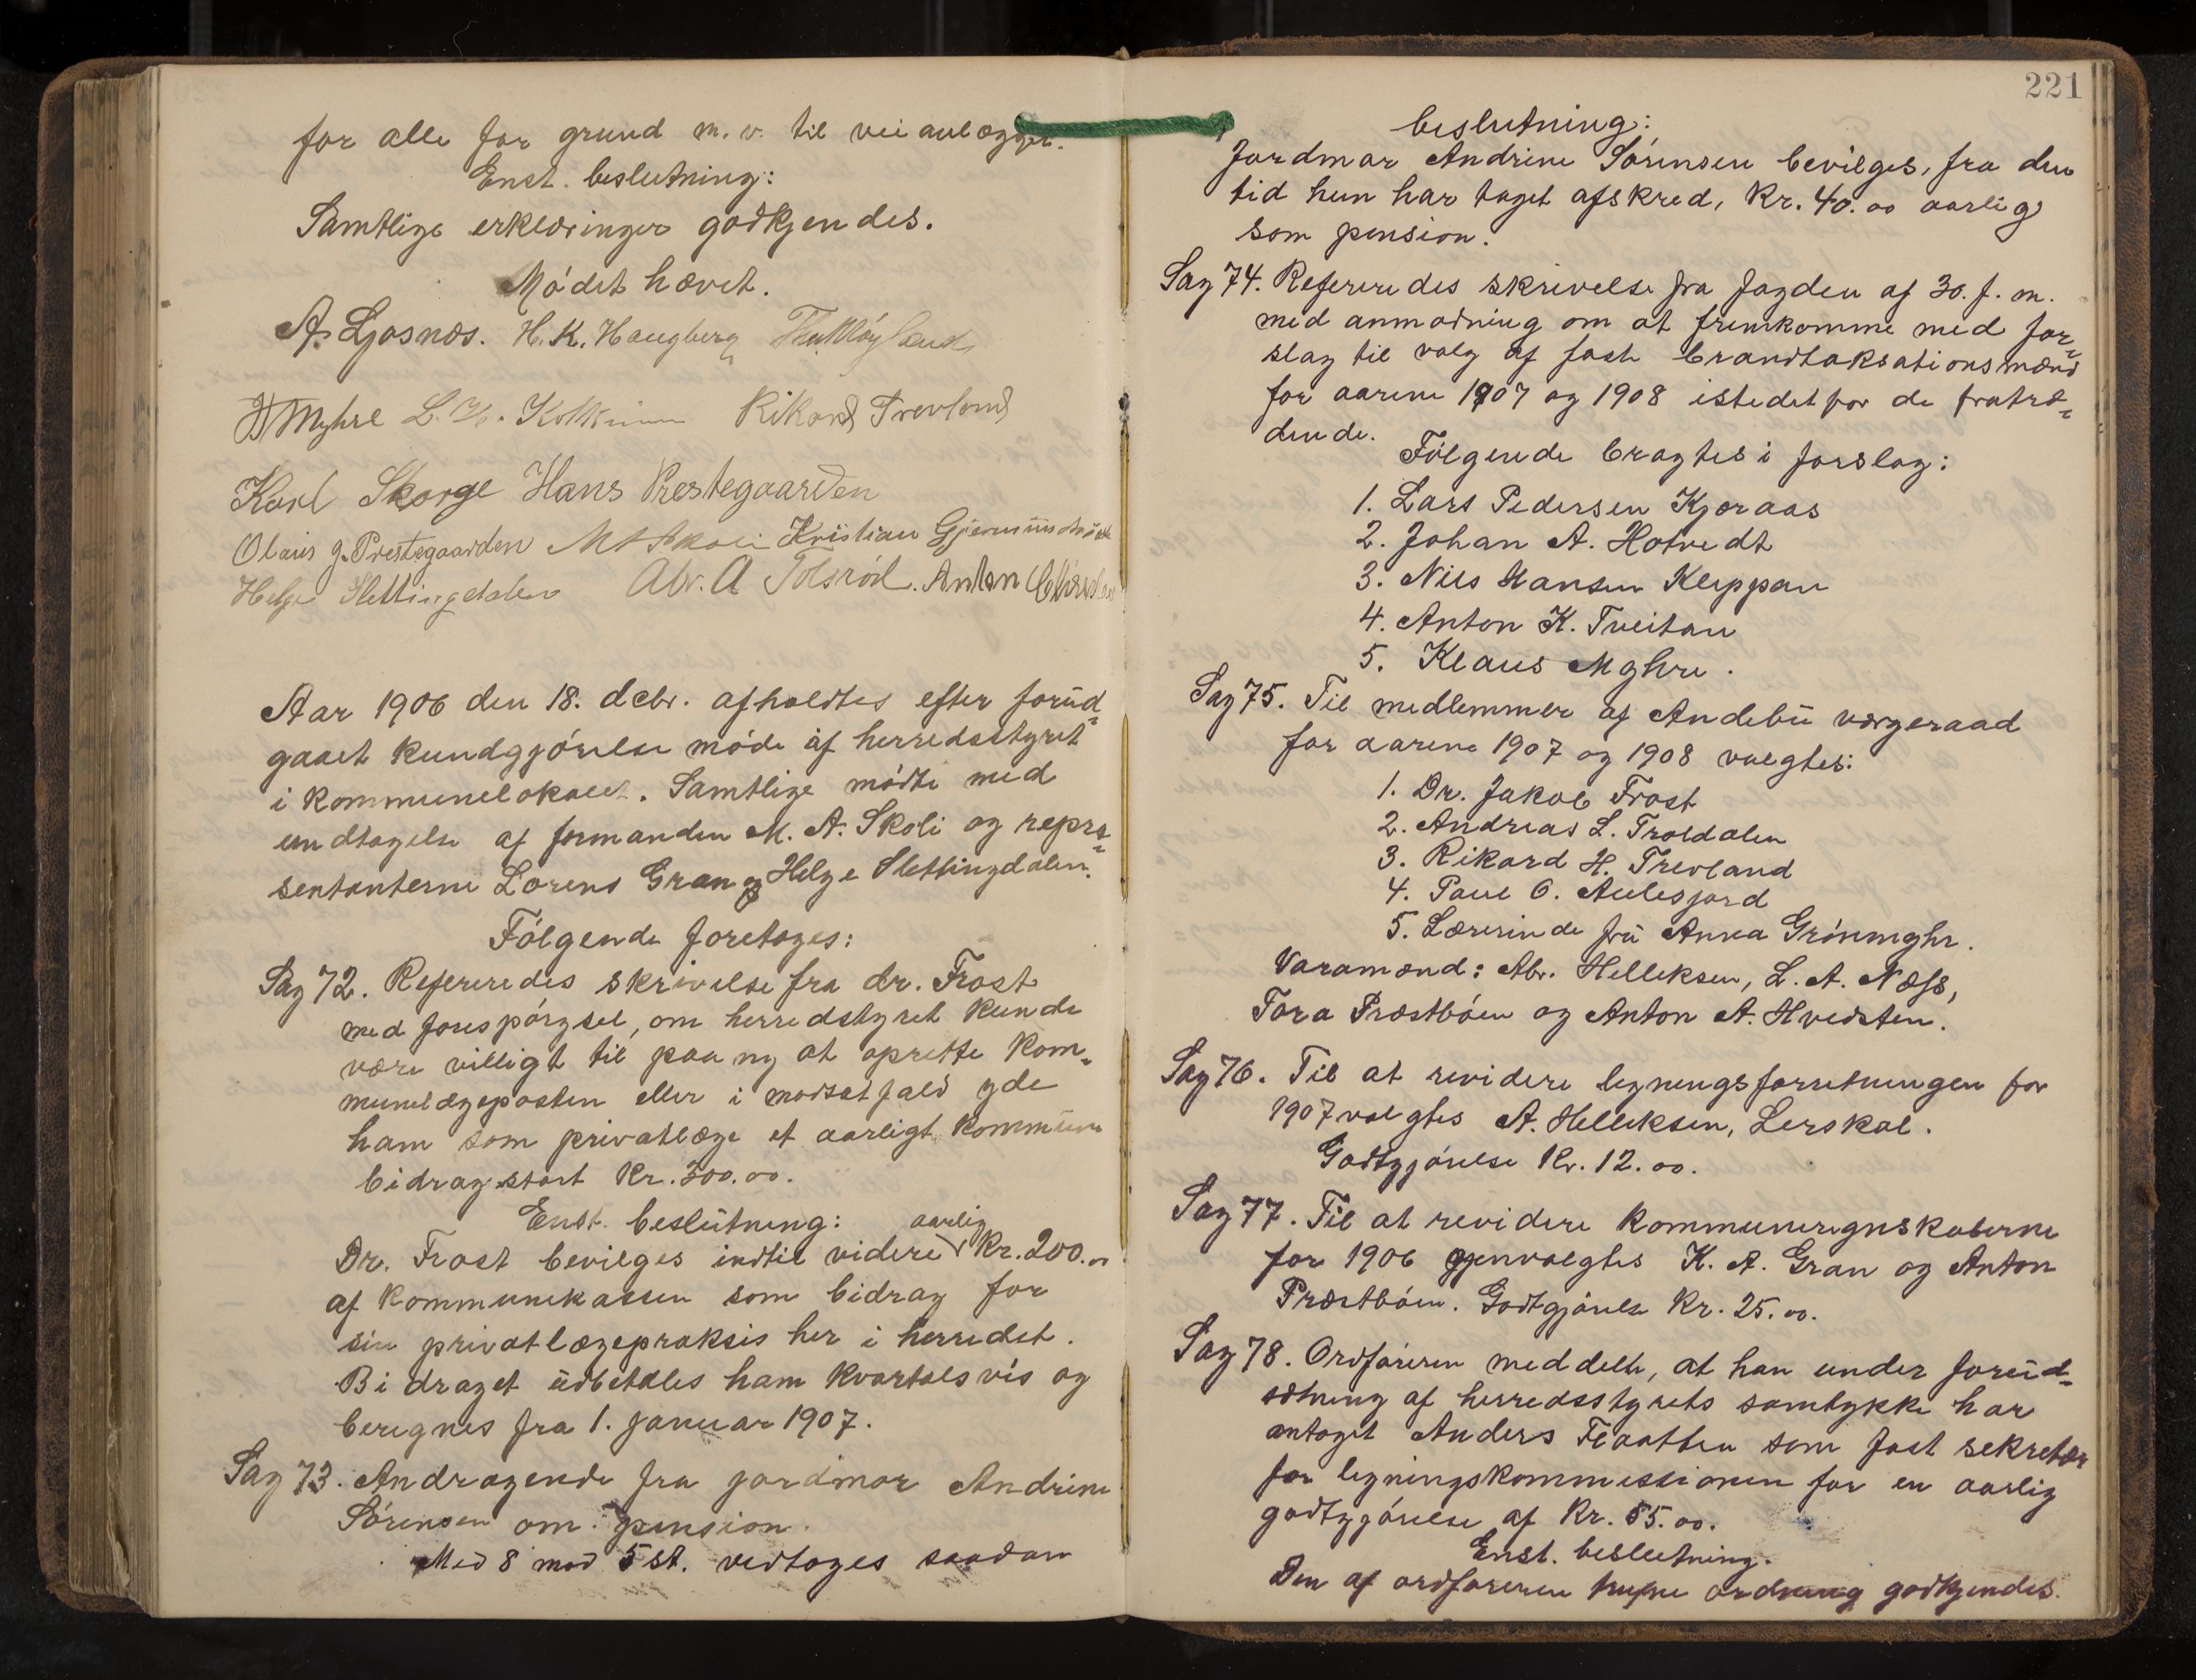 for alle for grund m. v. til veianlægget.
Enst. beslutning:
Samtlige erklæringer godkjendes.
Mødet hævet.
A. Ljosnæs. H. K. Haugberg
Myhre L. Rikard Trevland
Karl Skorge Hans Prestegaarden
Olaus J. Prestegaarden M A Skoli Kristian
Helge Slettingdalen Abr. A Tolsrød. Anton
Aar 1906 den 18. debr. afholdtes efter forud-
gaaet kundgjørelse møde af herredsstyret
i kommunelokalet. Samtlige mødte med
undtagelse af formanden M. A. Skoli og repræ-
sentanterne Lorens Gran og Helge Slettingdalen.
Følgende foretoges:
Sag 72. Refereredes skrivelse fra dr. Frost
med forespørgsel, om herredstyret kunde
være villigt til paa ny at oprette kom-
munelægeposten eller i modsat fald yde
ham som privatlæge et aarligt kommune
bidrag stort kr. 300.00.
Enst. beslutning:
Dr. Frost bevilges indtil videre aarlig kr. 200.00
af kommunekassen som bidrag for
sin privatlægepraksis her i herredet.
Bidraget udbetales ham kvartalsvis og
beregnes fra 1. januar 1907.
Sag 73. Andragende fra jordmor Andrine
Sørensen om pension.
Med 8 mod 5 st. vedtoges saadan
221
beslutning:
Jordmor Andrine Sørensen bevilges, fra den
tid hun har taget afskred, kr. 40.00 aarlig
som pension.
Sag 74. Refereredes skrivelse fra fogden af 30. f. m.
med anmodning om at fremkomme med for-
slag til valg af faste brandtaksationsmænd
for aarene 1907 og 1908 istedetfor de fratræ-
dende.
Følgende bragtes i forslag:
1. Lars Pedersen Kjæraas
2. Johan A. Hotvedt
3. Nils Hansen Kleppan
4. Anton K. Tveitan
5. Klaus Myhre.
Sag 75. Til medlemmer af Andebu værgeraad
for aarene 1907 og 1908 valgtes:
1. Dr. Jakob Frost
2. Andreas L. Troldalen
3. Rikard H. Trevland
4. Paul O. Aulesjord
5. Lærerinde fru Anna Grønmyhr.
Varamænd: Abr. Helleksen, L. A. Næss,
Tora Præstbøen og Anton A. Hvidsten.
Sag 76. Til at revidere ligningsforretningen for
1907 valgtes A. Helleksen, Lerskal.
Godtgjørelse kr. 12.00.
Sag 77. Til at revidere kommuneregnskaberne
for 1906 gjenvalgtes K. A. Gran og Anton
Præstbøen. Godtgjørelse kr. 25.00.
Sag 78. Ordføreren meddelte, at han under forud-
sætning af herredsstyrets samtykke har
antaget Anders Flaatten som fast sekretær
for ligningskommissionen for en aarlig
godtgjørelse af kr. 85.00.
Enst. beslutning.
Den af ordføreren trufne ordning godkjendes.